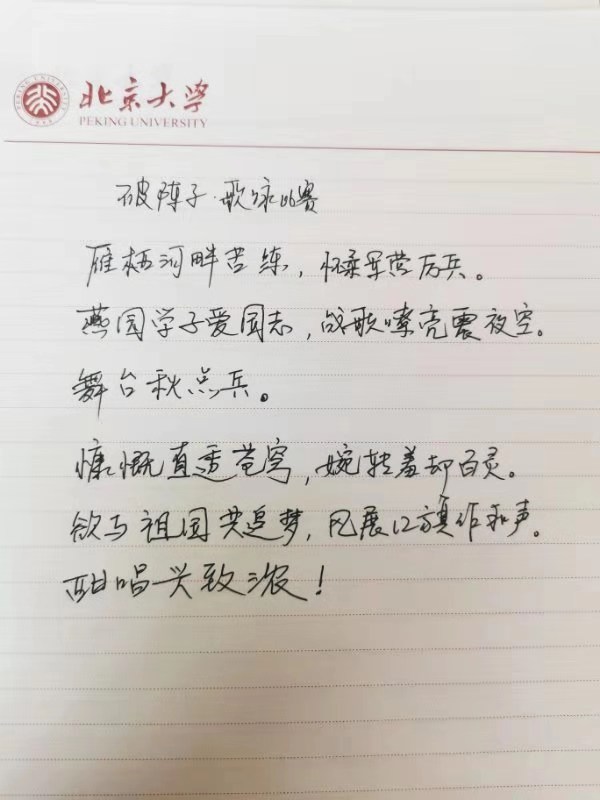 北京大学
PEKING UNIVERSITY
破阵子·歌咏比赛
雁栖河畔苦练，怀柔军营厉兵。
燕园学子爱国志，战歌嘹亮震夜空。
舞台秋点兵。
慷慨直透苍穹，婉转羞却百灵。
欲与祖国共追梦，风展红旗作和声。
酣唱兴致浓！